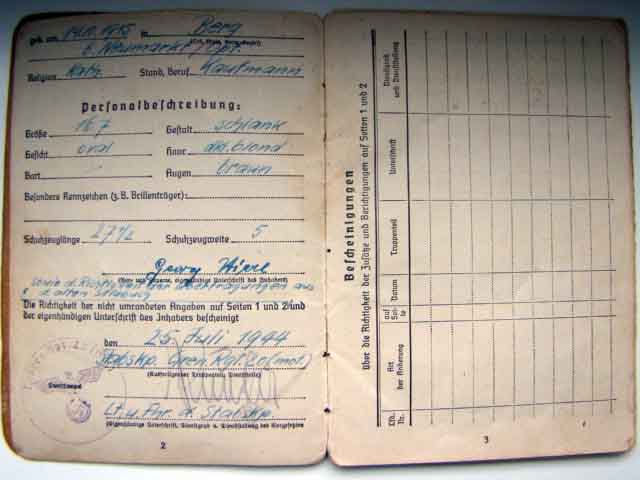 geb. am 1915 in Berg
b. Neumarkt / Opf.
Religion Kath. Stand, Beruf Kaufmann
Personalbeschreibung:
Größe 167 Gestalt schlank
Gesicht oval Haar dkl. blond
Bart - Augen braun
Besondere Kennzeichen (z. B. Brillenträger):
Schuhzeuglänge 27 1/2 Schuhzeugweite 5
Georg
(Vor- und Zuname, eigenhändige Unterschrift des Inhabers)
sowie d. Richtigkeit von Übertragungen aus
d. alten Soldbuch
Die Richtigkeit der nicht umrandeten Angaben auf Seiten 1 und 2 und
der eigenhändigen Unterschrift des Inhabers bescheinigt
den 25. Juli 1944
Stabskp. Gren. Rgt. (mot.)
(Ausfertigender Truppenteil, Dienststelle)
Dienststempel
Lt. u. Fhr. d. Stabskp.
(Eigenhändige Unterschrift, Dienstgrad u. Dienststellung des Vorgesetzten)
2
Bescheinigungen
über die Richtigkeit der Zusätze und Berichtigungen auf Seiten 1 und 2
Lfd. Nr.
Art der Änderung
auf Seite
Datum
Truppenteil
Unterschrift
Dienstgrad und Dienststellung
3